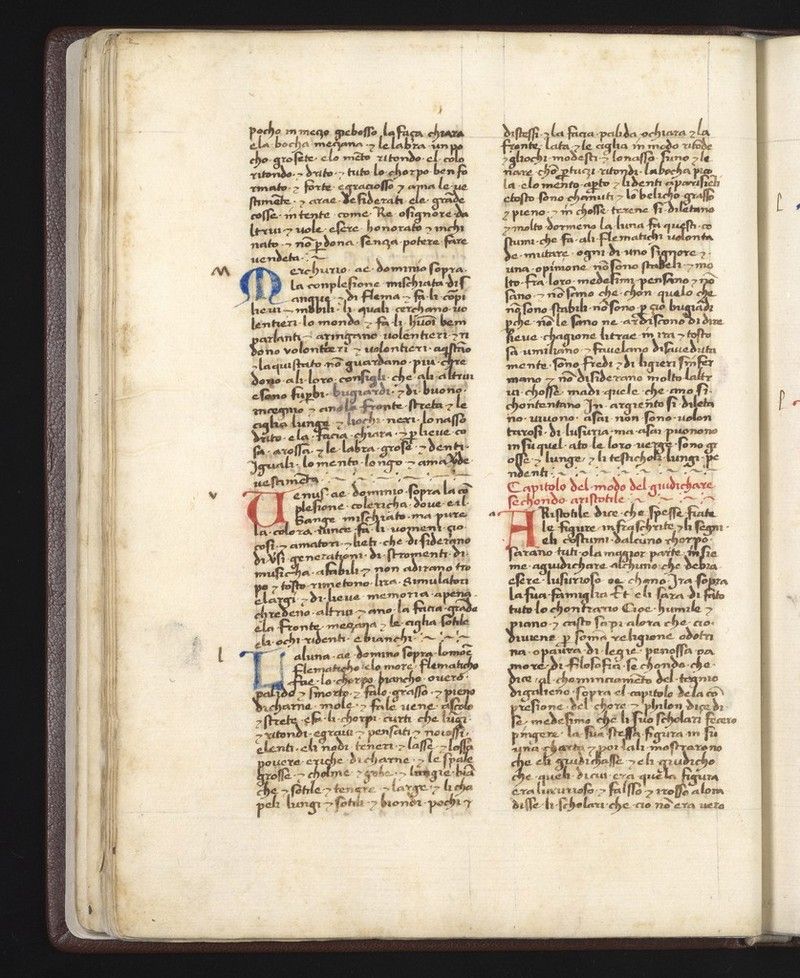 pocho in mezo grebosso la faza chiara
ela bocha mezana ⁊ le labra un po
cho grosete elo mēto ritondo el colo
ritondo ⁊ drito ⁊ tuto lo chorpo ben fo
rmato ⁊ forte egraciosso ⁊ ama le ve
stimēte ⁊ arae desiderati ele grade
cosse intente come Re osignore da
ltrui ⁊ vole esere honorato ⁊ inchi
nato ⁊ nō pdona senza potere fare
vendeta
M
Merchurio ae dominio sopra
la conplesione mischiata di s
angue ⁊ di flema ⁊ fa li corpi
lievi mobili li quali cerchano vo
lentieri lo mondo ⁊ fa li huōi bem
parlanti aringano volentieri ⁊ ri
dono volontieri ⁊ volontieri
la quistato nō guardano piu chre
dono ali loro consigli che ali altrui
esono supbi bugiardi ⁊ di buono
inzegnio ⁊ ano la fronte streta ⁊ le
ciglia lunge ⁊ liochi neri lo nasso
drito ela facia chiara ⁊ p lieve co
sa arossa ⁊ le labra grose ⁊ denti
Iguali lo mento longo ⁊ ama
vestimēta
v
Uenus ae dominio sopra la cō
plesione colericha dove e il
Sangue mischiato ma pure
la colora vince fa li uomeni gio
cosi ⁊ amatori ⁊ lieti che disiderano
di usi generationi di stromenti di
musicha afabili ⁊ non adirano tro
po ⁊ tosto rimetono lira simulatori
elargi ⁊ di lieve memoria apena
chredeno altrui ⁊ ano la facia grāde
ela fronte mezana ⁊ le ciglia sotile
eli ochi ridenti ebianchi
l
La luna ae domino sopra lomoē
flematicho elo more flematicho
fae lo chorpo biancho overo
palido ⁊ smorto ⁊ falo grasso ⁊ pieno
di charne mole ⁊ fale vene ascolo
⁊ strete efa li chorpi curti che lugi
⁊ ritondi egravi ⁊ pensati ⁊ noiossi
elenti eli nodi teneri ⁊ lasse ⁊ lossa
povere eriche di charne ⁊ le spale
grosse ⁊ cholme ⁊ gobe ⁊ lungie biā
che ⁊ sotile ⁊ tenere ⁊ large ⁊ li cha
peli lungi ⁊ sotili ⁊ biondi pochi ⁊
distessi ⁊ la facia palida ochiara ⁊ la
fronte lata ⁊ le ciglia in modo ritōde
⁊ gliochi modesti ⁊ lo nasso simo ⁊ le
nare chō ptuzi ritondi la bocha pico
la elo mento apto ⁊ li denti
etosto sono chanuti ⁊ lo belicho grasso
⁊ pieno ⁊ in chosse terene si diletano
⁊ molto dormeno la luna fa questi co
stumi che fa ali flematichi volonta
de mutare ogni di uno signore ⁊
una opinione nō sono stabeli ⁊ mo
lto fra loro medesimi pensano ⁊ nō
sano ⁊ nō sono che chon quelo che
nō sono stabili nō sono p cio bugiadi
pche nō le sano ne ardiscono di dire
lieve chagione litrae in ira ⁊ tosto
sa umiliano ⁊ favelano disaveduta
mente sono fredi ⁊ di ligieri sinfer
mano ⁊ nō disiderano molto laltr
ui chosse madi quele che ano si
chontentano In argiento si dileta
no vivono asai non sono volon
tarosi di lusuria ma asai puonono
in su quel ato le loro verge sono gr
osse ⁊ lunge ⁊ li testicholi lungi pe
ndenti
Capitolo del modo del giudichare
sechondo aristotile
ARistotile dice che spesse fiate
le figure infraschrite ⁊ li segni
eli costumi dalcuno chorpo
sarano tuti ola magior parte insie
me aguidichare alchuno che debra
esere lusurioso oe chano Ira sopra
la sua famiglia Et eli sara di fato
tuto lo chontrario Cioe humile ⁊
piano ⁊ casto sapi alora che cio
divene p soma religione odotri
na opaura di lege penossa oa
more di filosofia se chondo che
dice al chominciamēto del tegnio
digalieno sopra el capitolo dela cō
presione del chore ⁊ philon dice di
se medesimo che li suo scholari fecero
pingere la sua stessa figura in su
una charta ⁊ poi lali mostrarono
che eli giudichasse ⁊ eli giudicho
che queli di cui era quela figura
era luxurioso ⁊ falsso ⁊ irosso alora
disse li scholari che cio nō era vero